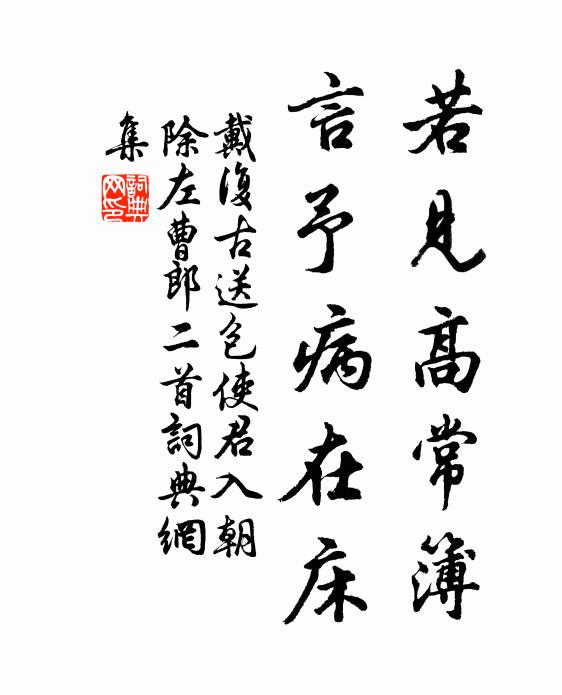 若見高常簿
言予病在床
戴復古送包使君入朝
除左曹郎二首詞典網
集
詞典
网印